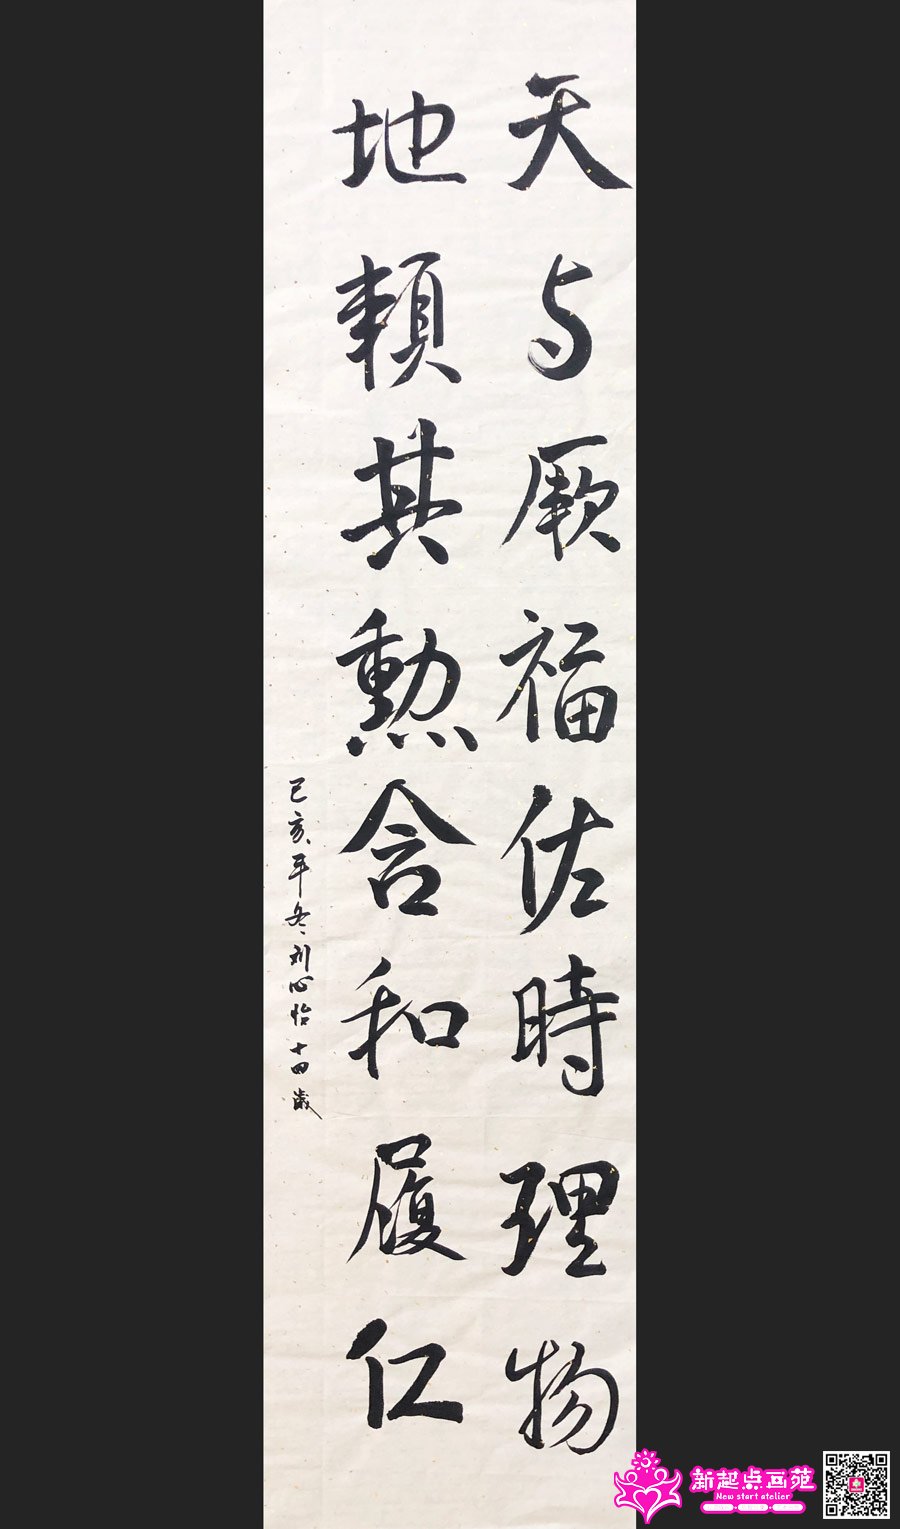 天与厥福佐時理物
地賴其勲含和履仁
己亥年冬刘心怡十四歲
新起点画苑
New start atelier